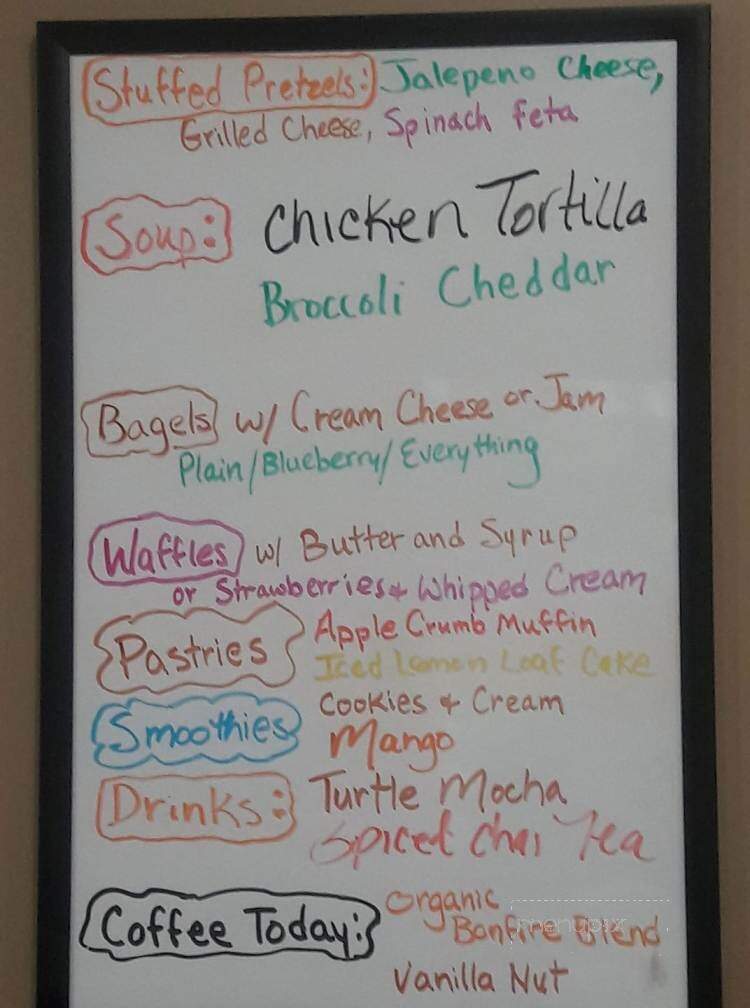 Stuffed Pretzels: Jalepeno Cheese,
Grilled Cheese, Spinach feta
Soup: Chicken Tortilla
Broccoli Cheddar
Bagels w/ Cream Cheese or Jam
Plain/Blueberry/Everything
Waffles w/ Butter and Syrup
or Strawberries & Whipped Cream
Pastries Apple Crumb Muffin
Iced Lemon Loaf Cake
Smoothies Cookies & Cream
Mango
Drinks: Turtle Mocha
Spiced Chai Tea
Coffee Today: Organic
Bonfire Blend
menupix
Vanilla Nut